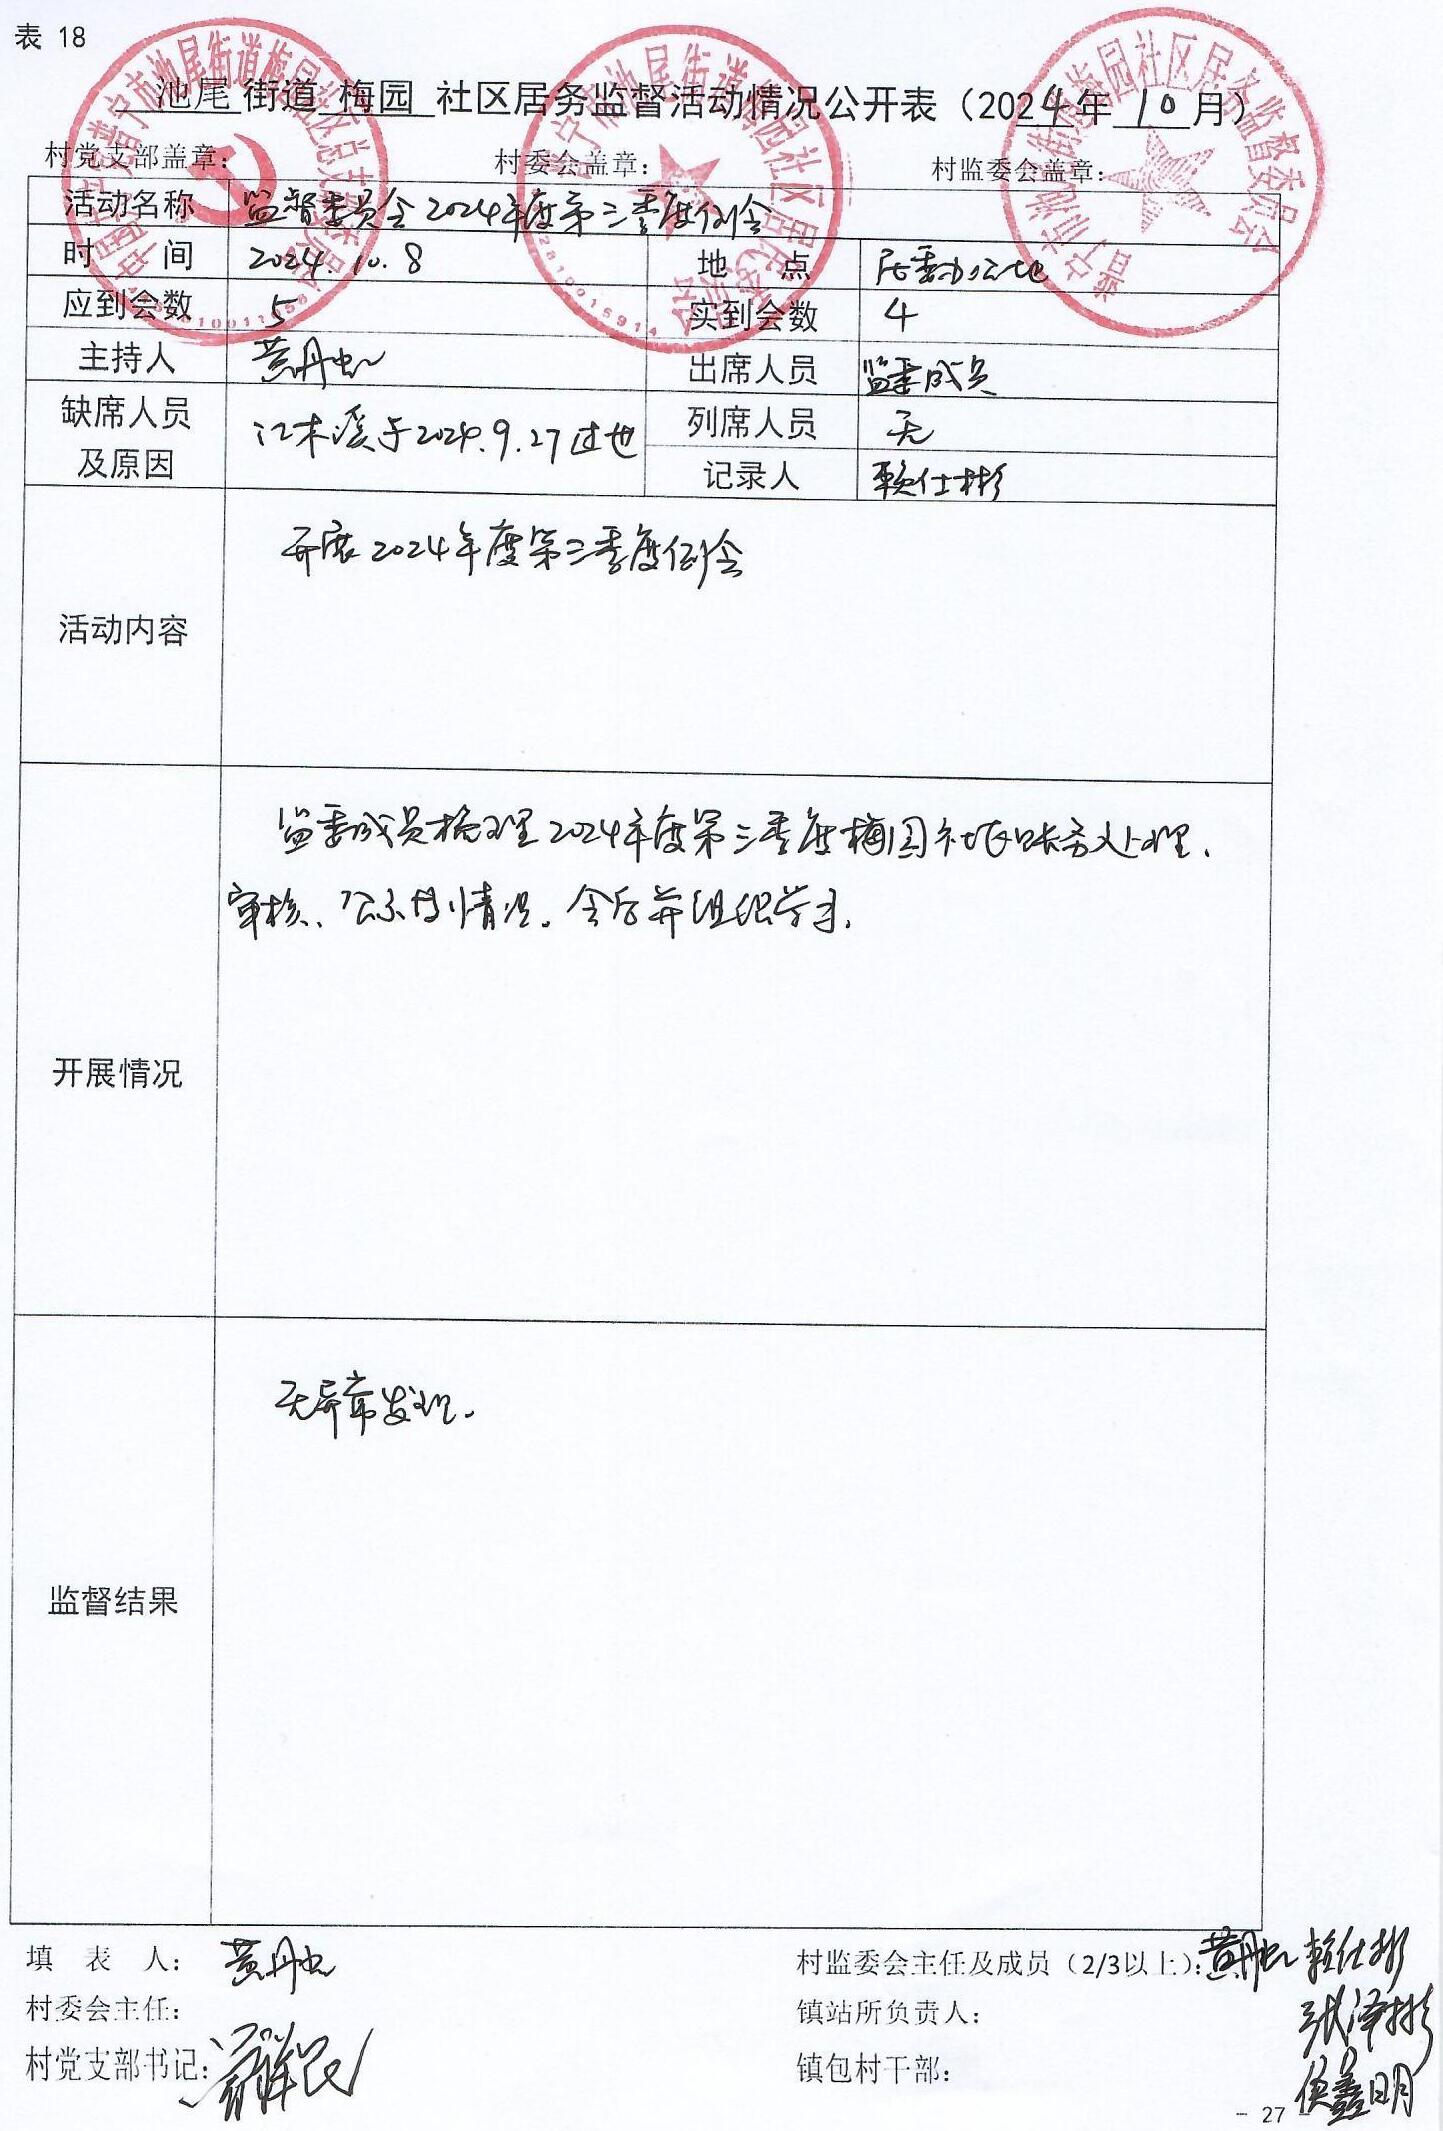 表 18
池尾 街道 梅园 社区居务监督活动情况公开表（2024年 10 月）
村党支部盖章： 村委会盖章： 村监委会盖章：
活动名称 监督委员会2024年度第三季度例会
时 间 2024.10.8 地 点 居委办公地
应到会数 5 实到会数 4
主持人 黄丹虹 出席人员 监委成员
缺席人员及原因 江木溪于2024.9.27过世 列席人员 无
记录人 赖仕彬
活动内容 开展2024年度第三季度例会
开展情况 监委成员梳理2024年度第三季度梅园社区账务处理、
审核、公示及情况。会后并组织学习.
监督结果 无异常发现.
填 表 人： 黄丹虹 村监委会主任及成员（2/3以上）：黄丹虹 赖仕彬
张泽彬
村委会主任： 镇站所负责人：
村党支部书记： 镇包村干部：
- 27 -